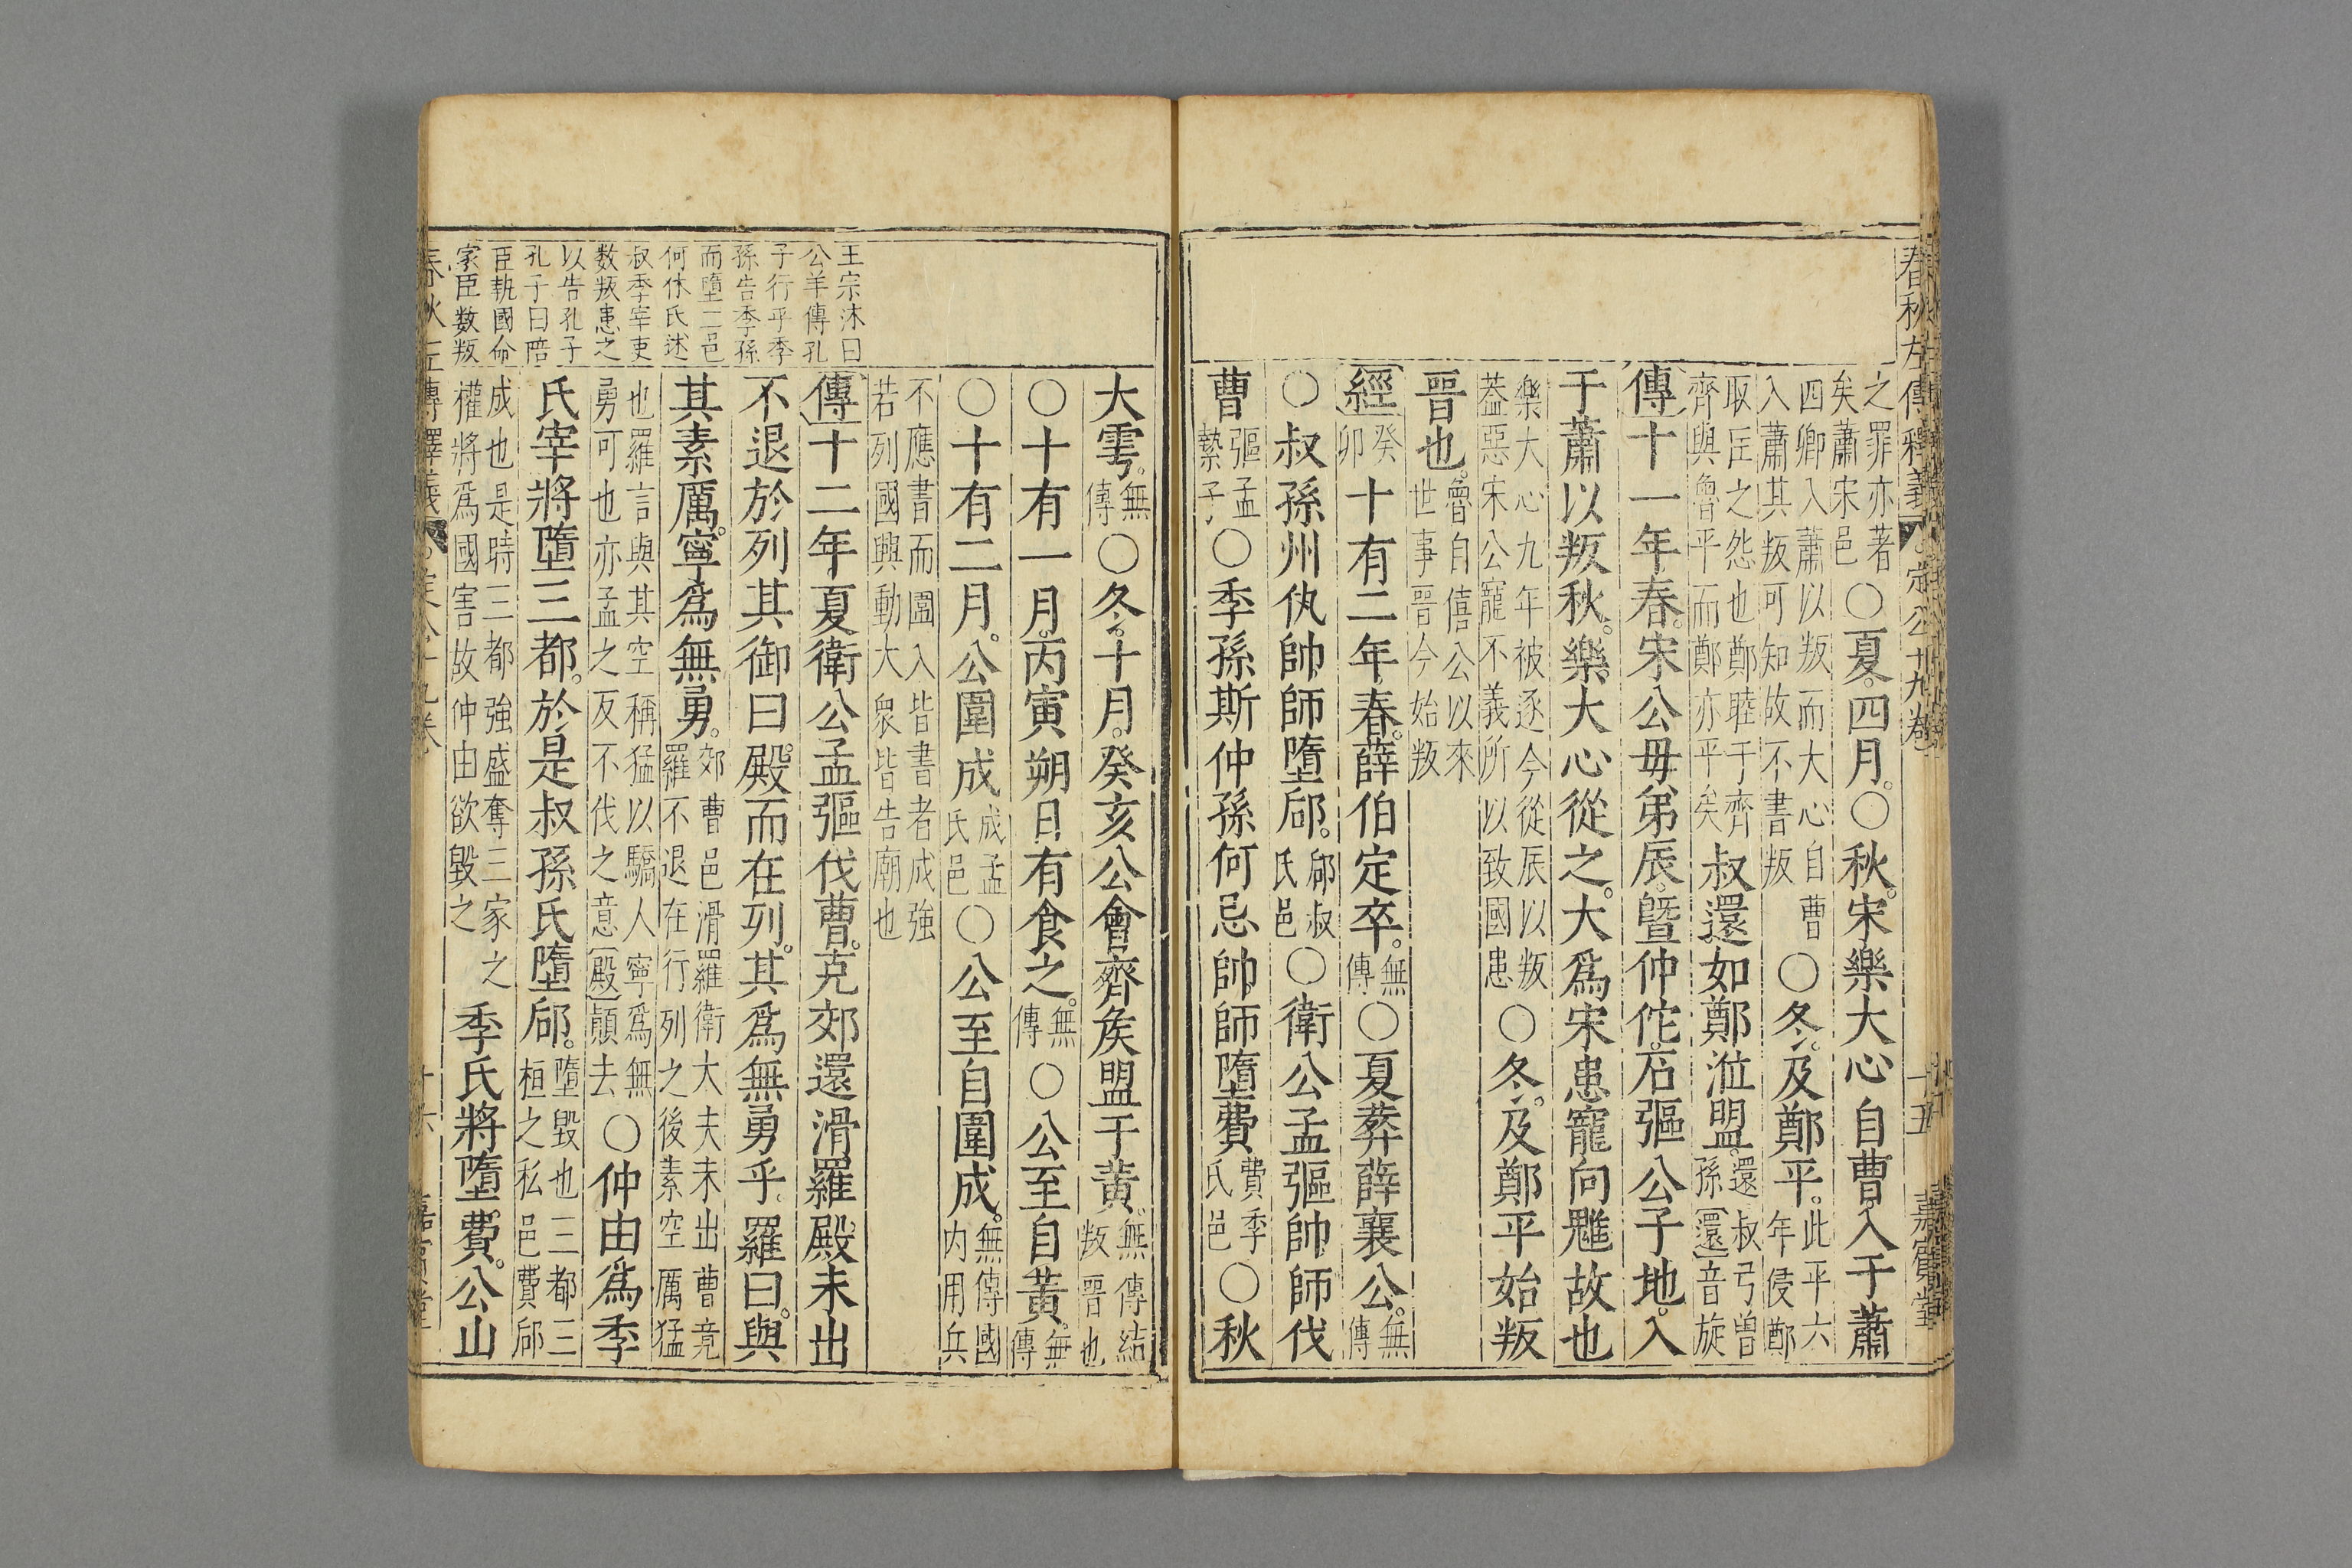 春秋左傳釋義 定公十九卷 十五 嘉賓堂
之罪亦著矣蕭宋邑○夏四月○秋宋樂大心自曹入于蕭
四卿入蕭以叛而大心自曹入蕭其叛可知故不書叛○冬及鄭平此平六年侵鄭
取匡之怨也鄭睦于齊齊與魯平而鄭亦平矣叔還如鄭涖盟還叔弓曾孫還音旋
傳十一年春宋公毋弟辰曁仲佗石彄公子地入
于蕭以叛秋樂大心從之大爲宋患寵向魋故也
樂大心九年被逐今從辰以叛葢惡宋公寵不義所以致國患○冬及鄭平始叛
晉也魯自僖公以來世事晉今始叛
經癸卯十有二年春薛伯定卒無傳○夏葬薛襄公無傳
○叔孫州仇帥師墮郈郈叔氏邑○衛公孟彄帥師伐
曹彄孟縶子○季孫斯仲孫何忌帥師墮費費季氏邑○秋
大雩無傳○冬十月癸亥公會齊矦盟于黃無傳結叛晉也
○十有一月丙寅朔日有食之無傳○公至自黃無傳
○十有二月公圍成成孟氏邑○公至自圍成無傳國内用兵
不應書而圍入皆書者成強若列國興動大衆皆告廟也
傳十二年夏衛公孟彄伐曹克郊還滑羅殿未出
不退於列其御曰殿而在列其爲無勇乎羅曰與
其素厲寧爲無勇郊曹邑滑羅衛大夫未出曹竟羅不退在行列之後素空厲猛
也羅言與其空稱猛以驕人寧爲無勇可也亦孟之反不伐之意殿顚去○仲由爲季
氏宰將墮三都於是叔孫氏墮郈墮毀也三都三桓之私邑費郈
成也是時三都強盛奪三家之權將爲國害故仲由欲毀之季氏將墮費公山
王宗沐曰
公羊傳孔
子行乎季
孫告季孫
而墮二邑
何休氏述
叔季宰吏
数叛患之
以告孔子
孔子曰陪
臣執國命
家臣数叛